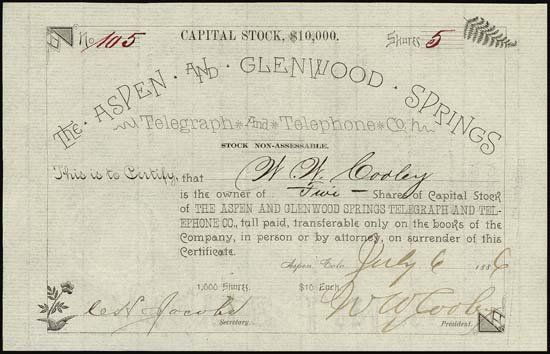 No 105 CAPITAL STOCK, $10,000. Shares 5
The Aspen and Glenwood Springs
Telegraph And Telephone Co.
STOCK NON-ASSESSABLE.
This is to Certify, that W. W. Cooley
is the owner of Five Shares of Capital Stock
of THE ASPEN AND GLENWOOD SPRINGS TELEGRAPH AND TEL-
EPHONE CO., full paid, transferable only on the books of the
Company, in person or by attorney, on surrender of this
Certificate.
Aspen Colo. July 6 1886
1,000 Shares. $10 Each.
Jacobs W W Cooley
Secretary. President.